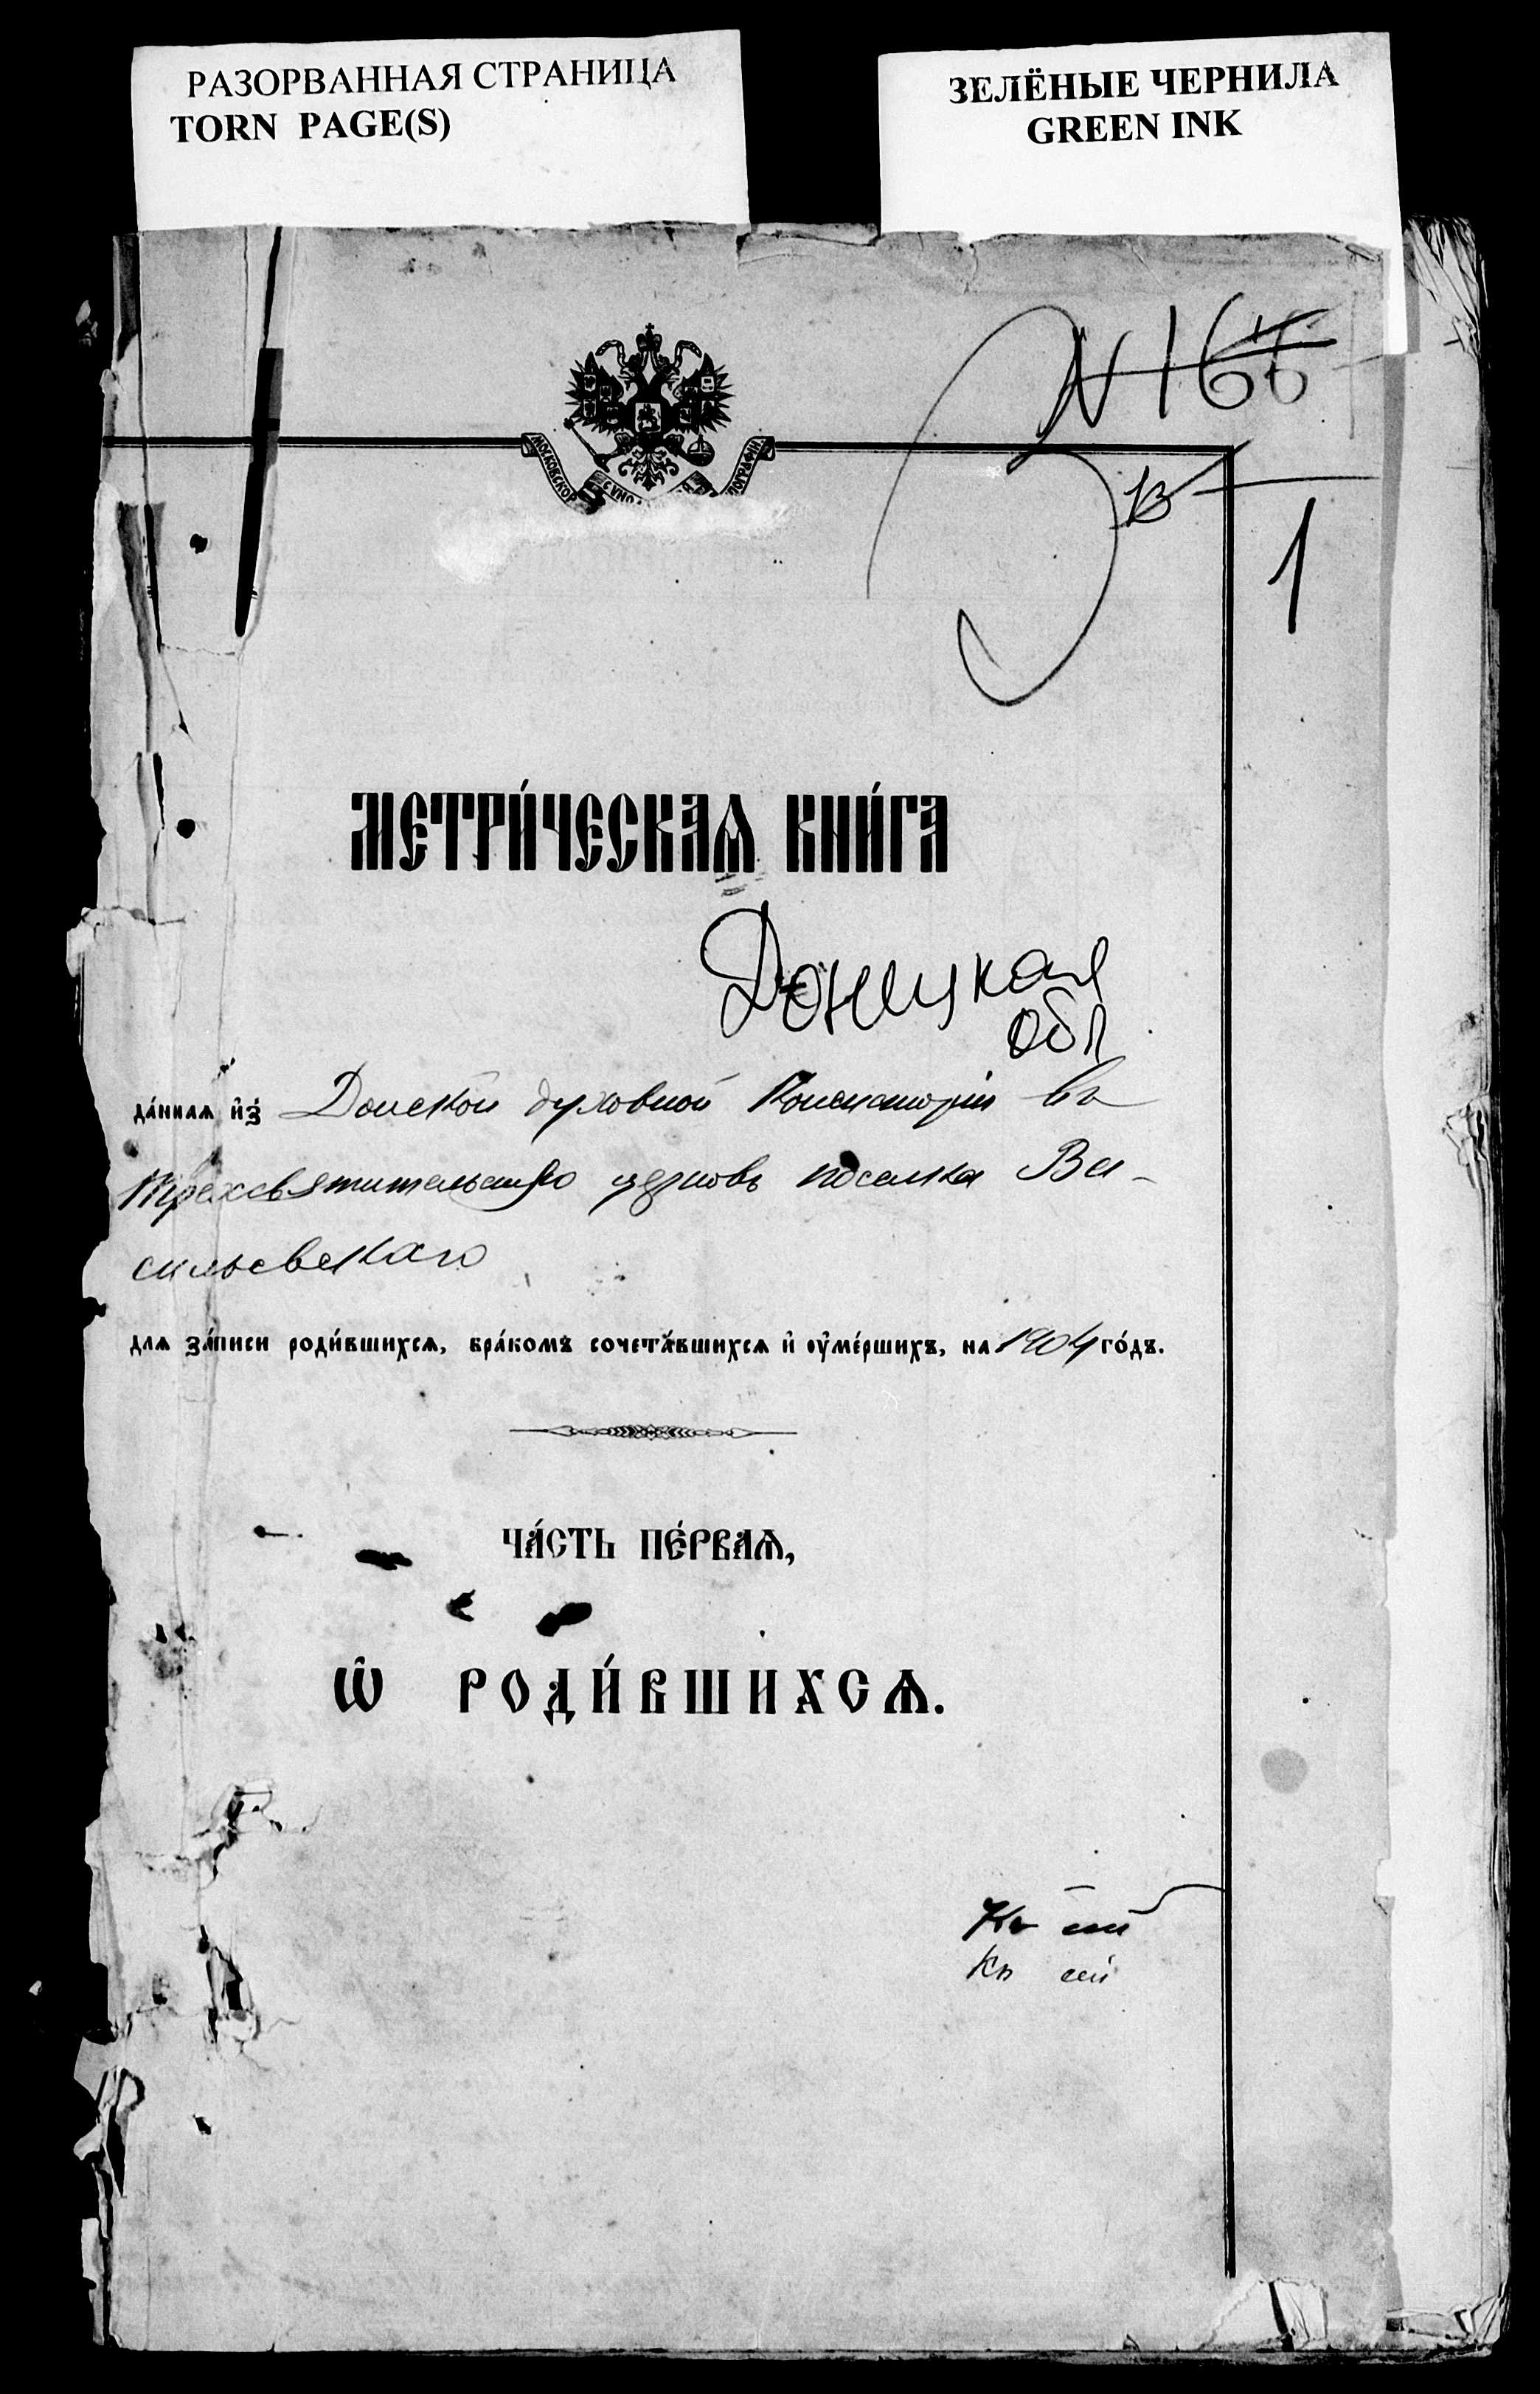 РАЗОРВАННАЯ СТРАНИЦА
TORN PAGE(S)
ЗЕЛЁНЫЕ ЧЕРНИЛА
GREEN INK
N 16
1
МЕТРИ́ЧЕСКАѦ КНИ́ГА
Донецкая
обл
да́ннаѧ и҆з̾ Донской духовной Консисторіи въ
Трехсвятительскую церковь поселка Ва-
сильевскаго
для за́писи роди́вшихсѧ, бра́комъ сочета́вшихсѧ и҆ оу҆ме́ршихъ, на 1904 го́дъ.
ЧА́СТЬ ПЕ́РВАѦ,
Ѡ҆ РОДИ́ВШИХСѦ.